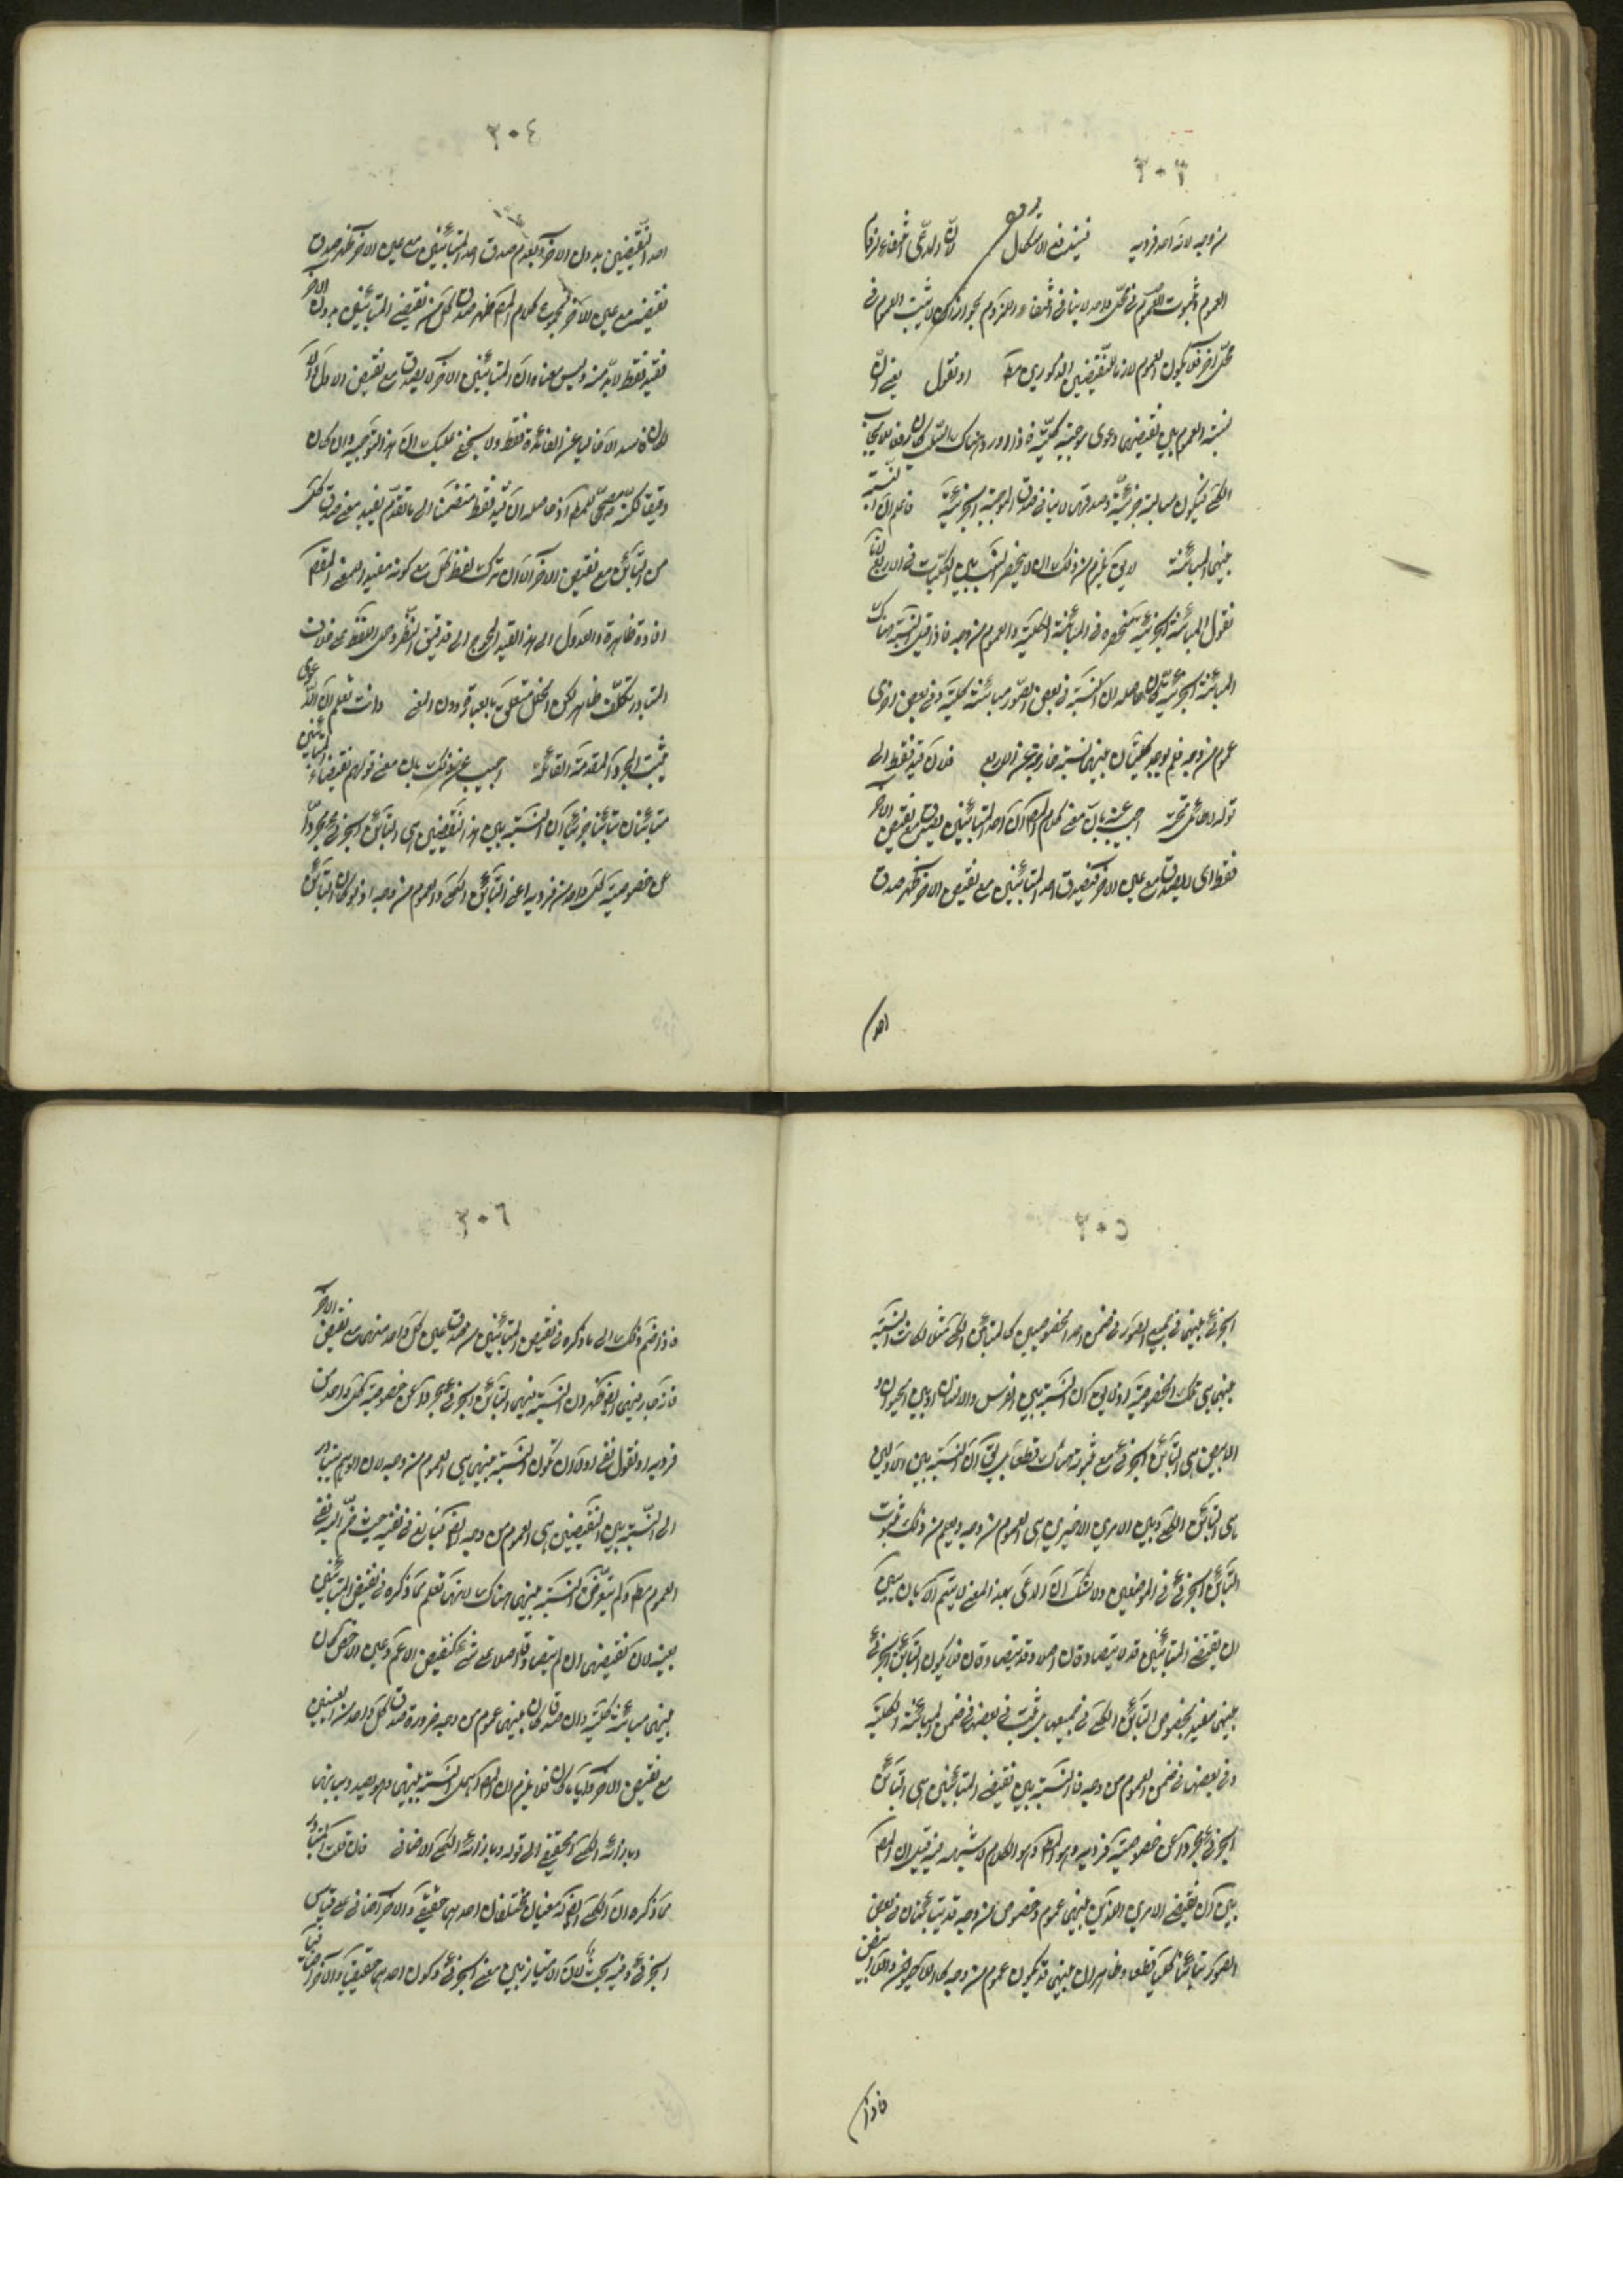 ٣٠٣
من وجه لانه احد فرديه فيندفع الاشكال لان المدعى انتفاء لزوم
العموم وثبوت العموم فى محل واحد لا ينافى انتفاء اللزوم لجواز ان لا يثبت العموم فى
محل اخر فلا يكون العموم لازما للنقيضين المذكورين مط او نقول يعنى ان
نسبة العموم بين نقيضيهما دعوى موجبة كلية فاذا ورد هناك السلب كان رفع الايجاب
الكلى فيكون سالبة جزئية وصدقها لا ينافى صدق الموجبة الجزئية فاعلم ان النسبة
بينهما المباينة لا يق يلزم من ذلك ان لا ينحصر النسب بين الكليات فى الاربع لانا
نقول المباينة الجزئية منحصرة فى المباينة الكلية والعموم من وجه فاذا قيل النسبة هناك
المباينة الجزئية كان حاصله ان النسبة فى بعض الصور مباينة كلية وفى بعض اخرى
عموم من وجه فلم يوجد كليتان بينهما نسبة خارجة عن الاربع فلان قيد فقط الى
قوله لا طائل تحته اجيب عنه بان معنى كلام المص ان احد المتباينين يصدق مع نقيض الاخر
فقط اى لا يصدق مع عين الاخر فبصدق احد المتباينين مع نقيض الاخر ظهر صدق
احد
٣٠٤
احد النقيضين بدون الاخر وبعدم صدق احد المتباينين مع عين الاخر ظهر صدق
نقيضه مع عين الاخر فبمجموع كلام المص ظهر صدق كل من نقيضى المتباينين بدون الاخر
فقيد فقط لا بد منه وليس معناه ان المتباينين الاخر لا يصدق مع نقيض الاول والا
لكان فاسدا لا خاليا عن الفائدة فقط ولا يخفى عليك ان هذا التوجيه وان كان
دقيقا لكنه مصحح للمط اذ حاصله ان قيد فقط منضما الى ما تقدم يفيد معنى صدق كل
من المتباين مع نقيض الاخر الا ان ترك لفظ كل مع كونه مفيدا للمعنى المقصود
افادة ظاهرة والعدول الى هذا القيد المحوج الى تدقيق النظر وحمل اللفظ على خلاف
المتبادر تكلف ظاهر لكن الخلل متعلق بالعبارة دون المعنى وانت تعلم ان الدعوى
يثبت بمجرد المقدمة القائلة اجيب عن ذلك بان معنى قولهم نقيضا المتباينين
متباينان تباينا جزئيا ان النسبة بين هذا النقيضين هى التباين الجزئى مجردا
عن خصوصية كل واحد من فرديه اعنى التباين الكلى والعموم من وجه اذ لو كان التباين
٣٠٥
الجزئى بينهما فى جميع الصور فى ضمن احد المخصوصين كالتباين الكلى مثلا لكانت النسبة
بينهما هى تلك الخصوصية اذ لا يق ان النسبة بين الفرس والانسان او بين الحيوان و
الابيض هى التباين الجزئى مع ثبوته هناك قطعا بل يق ان النسبة بين الاولين
هى التباين الكلى وبين الامرين الاخيرين هى العموم من وجه ويعلم من ذلك ثبوت
التباين الجزئى فى الموضعين ولا شك ان المدعى بهذا المعنى لا يتم الا بان يبين
ان نقيضى المتباينين قد لا يتصادقان اصلا وقد يتصادقان فلا يكون التباين الجزئى
بينهما مفيدا بخصوص التباين الكلى فى جميعها بل يثبت فى بعضها فى ضمن المباينة الكلية
وفى بعضها فى ضمن العموم من وجه فالنسبة بين نقيضى المتباينين هى التباين
الجزئى مجردا عن خصوصية فرديه وهو المط وهو الكلام لا شبهة فيه قيل ان المص
بين ان نقيضى الامرين اللذين بينهما عموم وخصوص من وجه قد يتباينان فى بعض
الصور تباينا كليا قطعا وظاهر ان بينهما قد يكون عموم من وجه كاللاحيوان واللاابيض
فاذا
٣٠٦
فاذا ضم ذلك الى ما ذكره فى نقيض المتباينين من صدق عين كل واحد منهما مع نقيض الاخر
فانه جار بينهما ايض ظهر ان النسبة بينهما التباين الجزئى مجردا عن خصوصية كل واحد من
فرديه او نقول نفى اولا ان تكون النسبة بينهما هى العموم من وجه لان الوهم يتبادر
الى النسبة بين النقيضين هى العموم من وجه ايض فيبالغ فى نفيه حيث ضم اليه نفى
العموم مط ولم يتعرض النسبة بينهما هناك لانها تعلم مما ذكره فى نقيض المتباينين
بعينه لان نقيضيهما ان لم يتصادقا اصلا على شئ كنقيض الاعم وعين الاخص كان
بينهما مباينة كلية وان صدقا كان بينهما عموم من وجه ضرورة صدق كل واحد من العينين
مع نقيض الاخر وايا ما كان فلا يلزم ان المص اهمل النسبة بينهما وهو بصدد بيانها
وبازائه الكلى الحقيقى الى قوله وبازائه الكلى الاضافى فان قلت المتبادر
مما ذكره ان الكلى ايض له معنيان مختلفان احدهما حقيقى والاخر اضافى على قياس
الجزئى وفيه بحث لان الامتياز بين معنى الجزئى وكون احدهما حقيقيا والاخر اضافيا